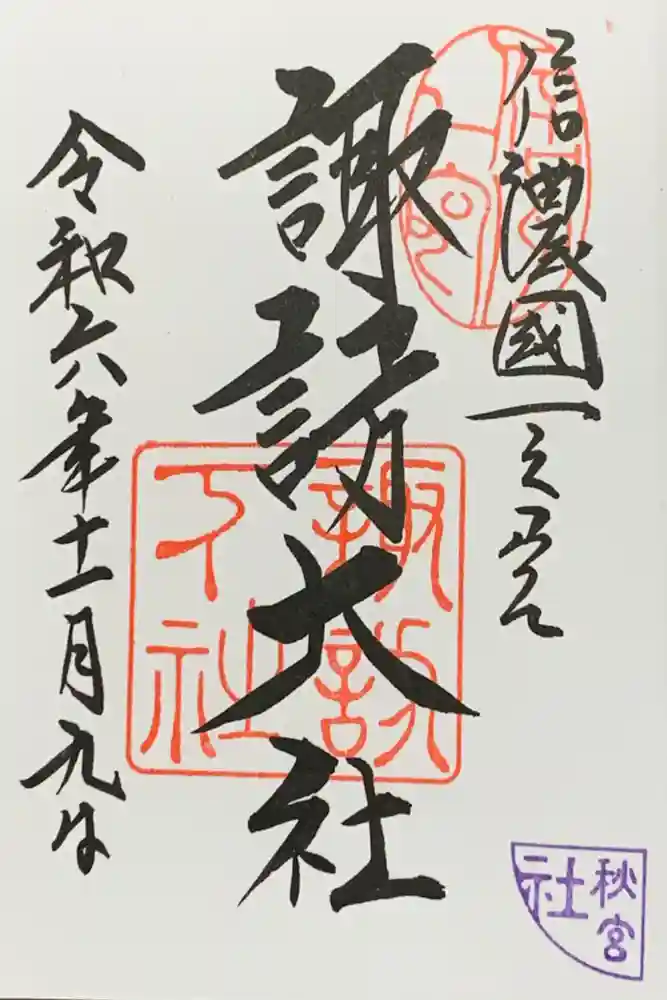 信濃國一之宮
諏訪大社
諏訪
下社
令和六年十一月九日
秋宮
社